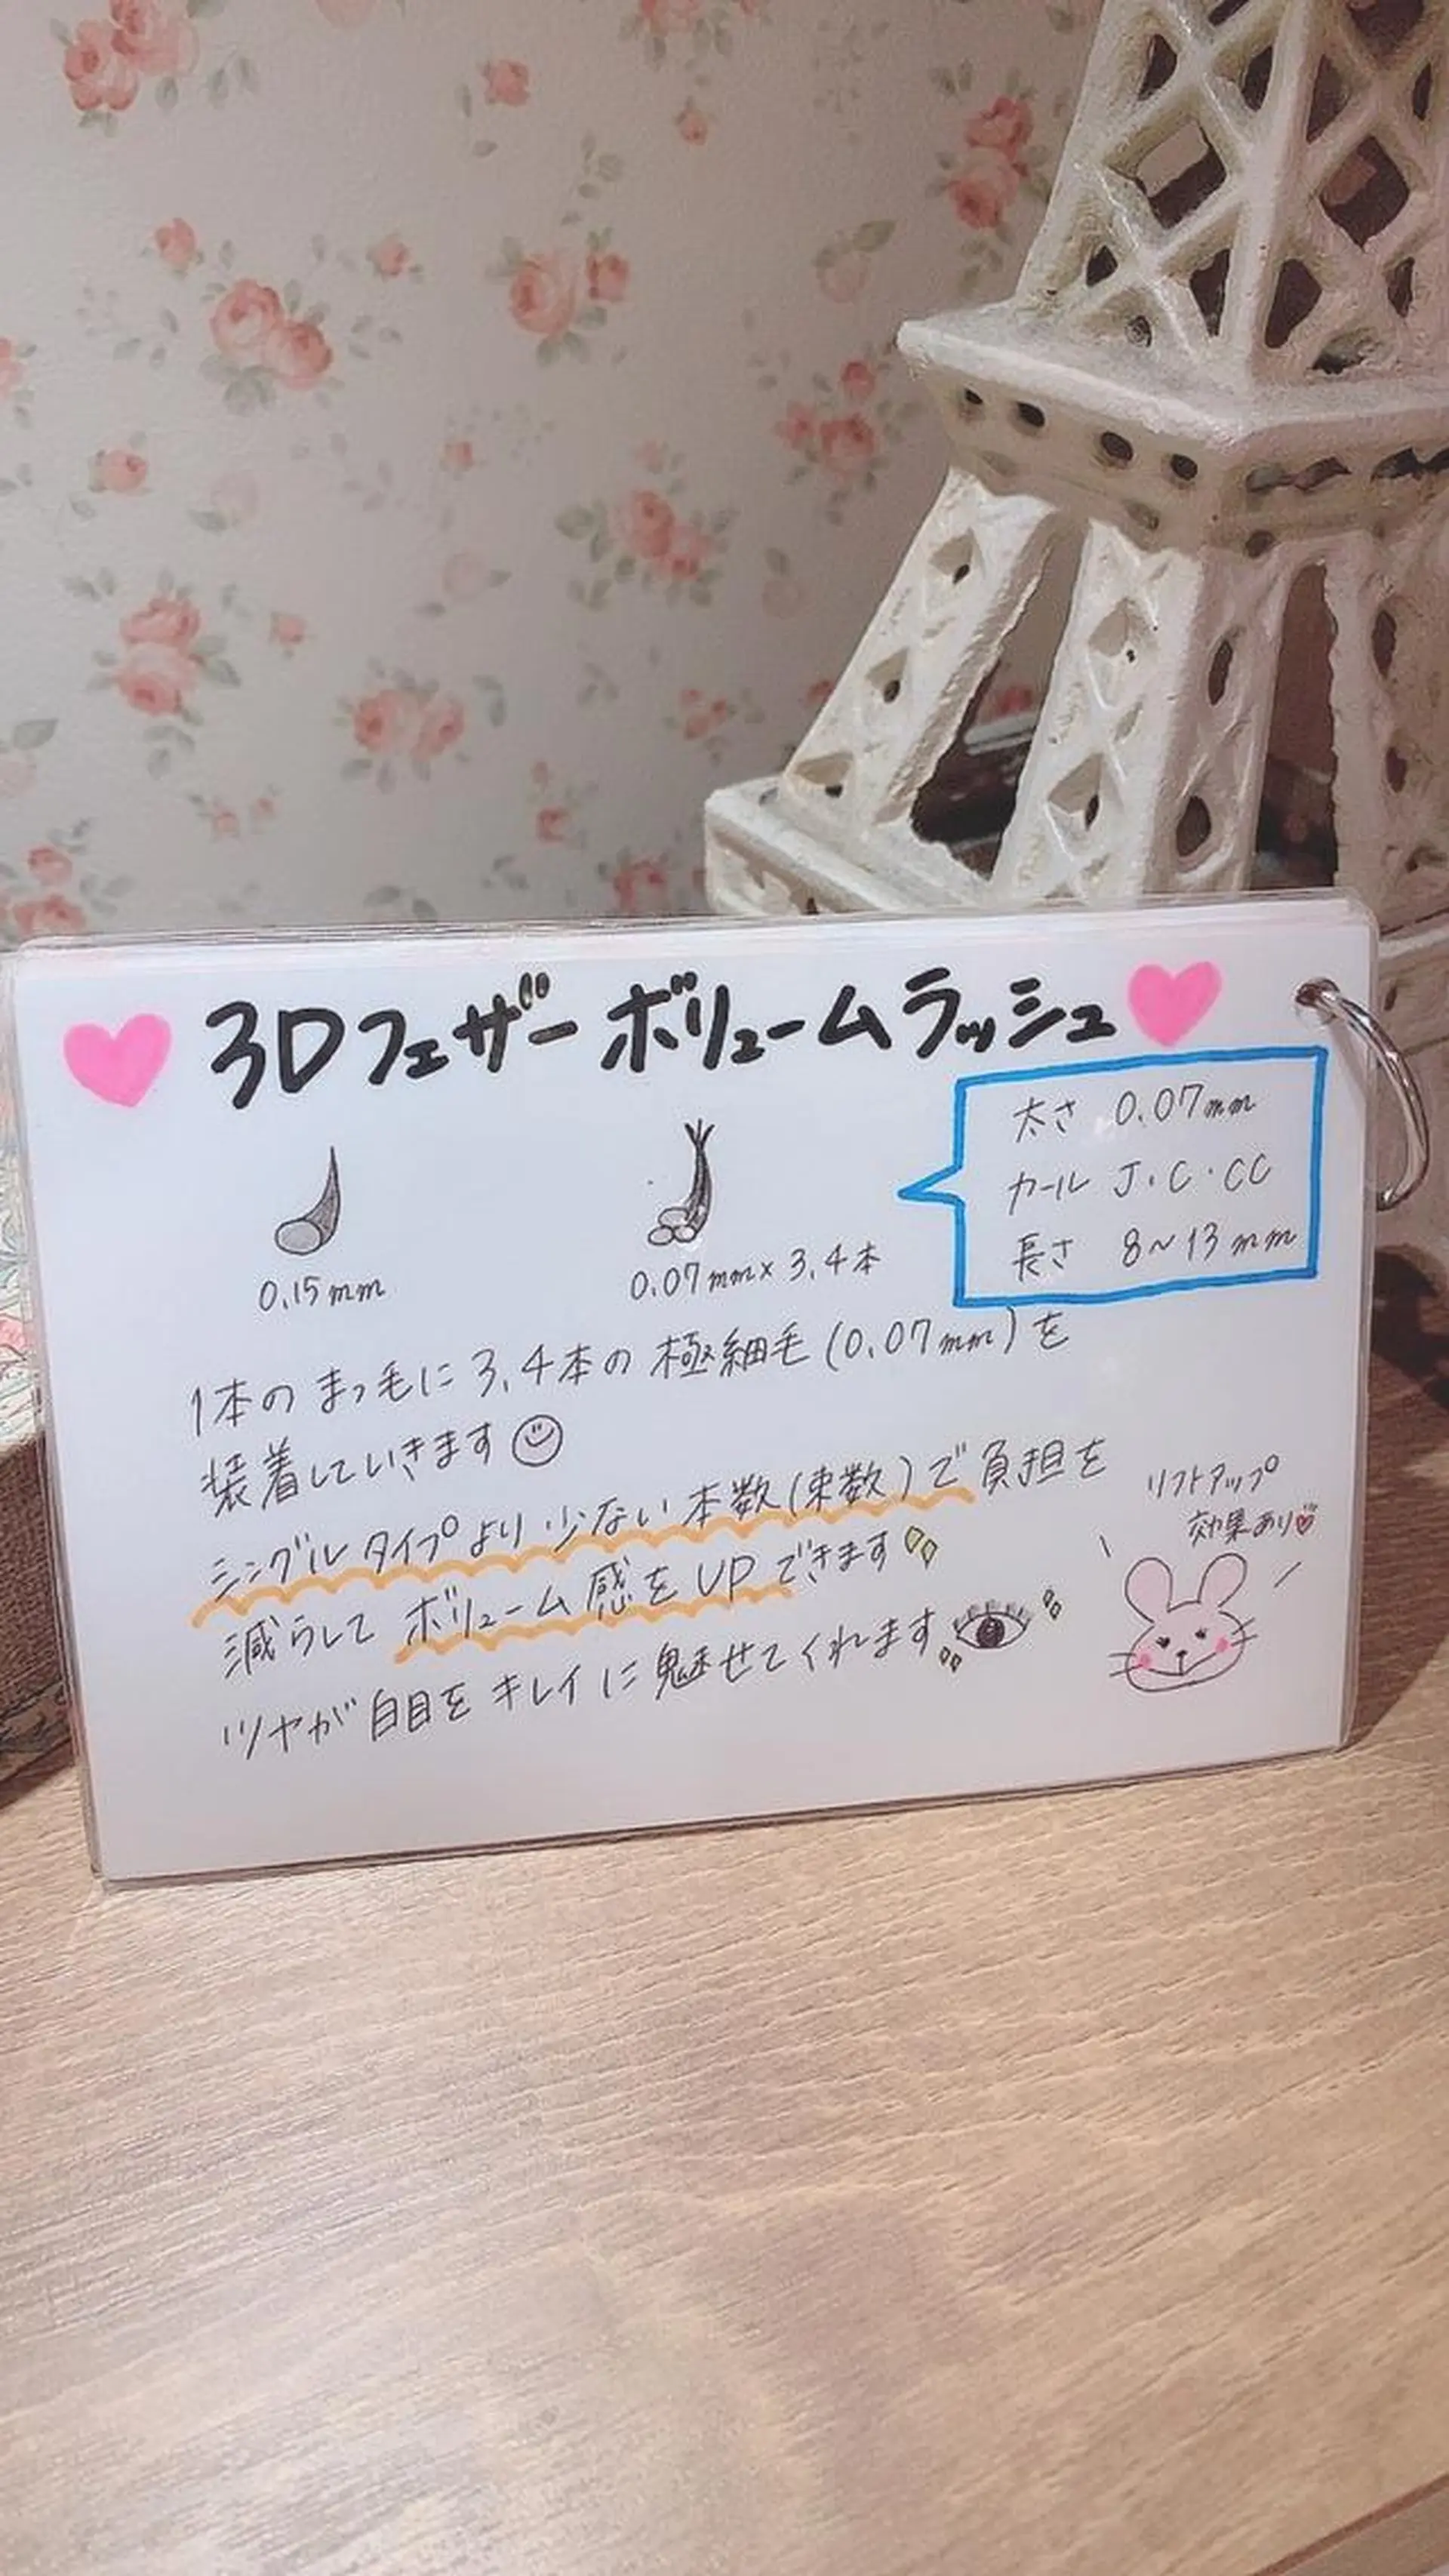 3Dフェザーボリュームラッシュ
太さ 0.07mm
カール J・C・CC
長さ 8~13mm
0.15mm
0.07mm×3,4本
1本のまつ毛に3,4本の極細毛(0.07mm)を
装着していきます
シングルタイプより少ない本数(束数)で負担を
減らしてボリューム感をUPできます
ツヤが白目をキレイに魅せてくれます
リフトアップ
効果あり